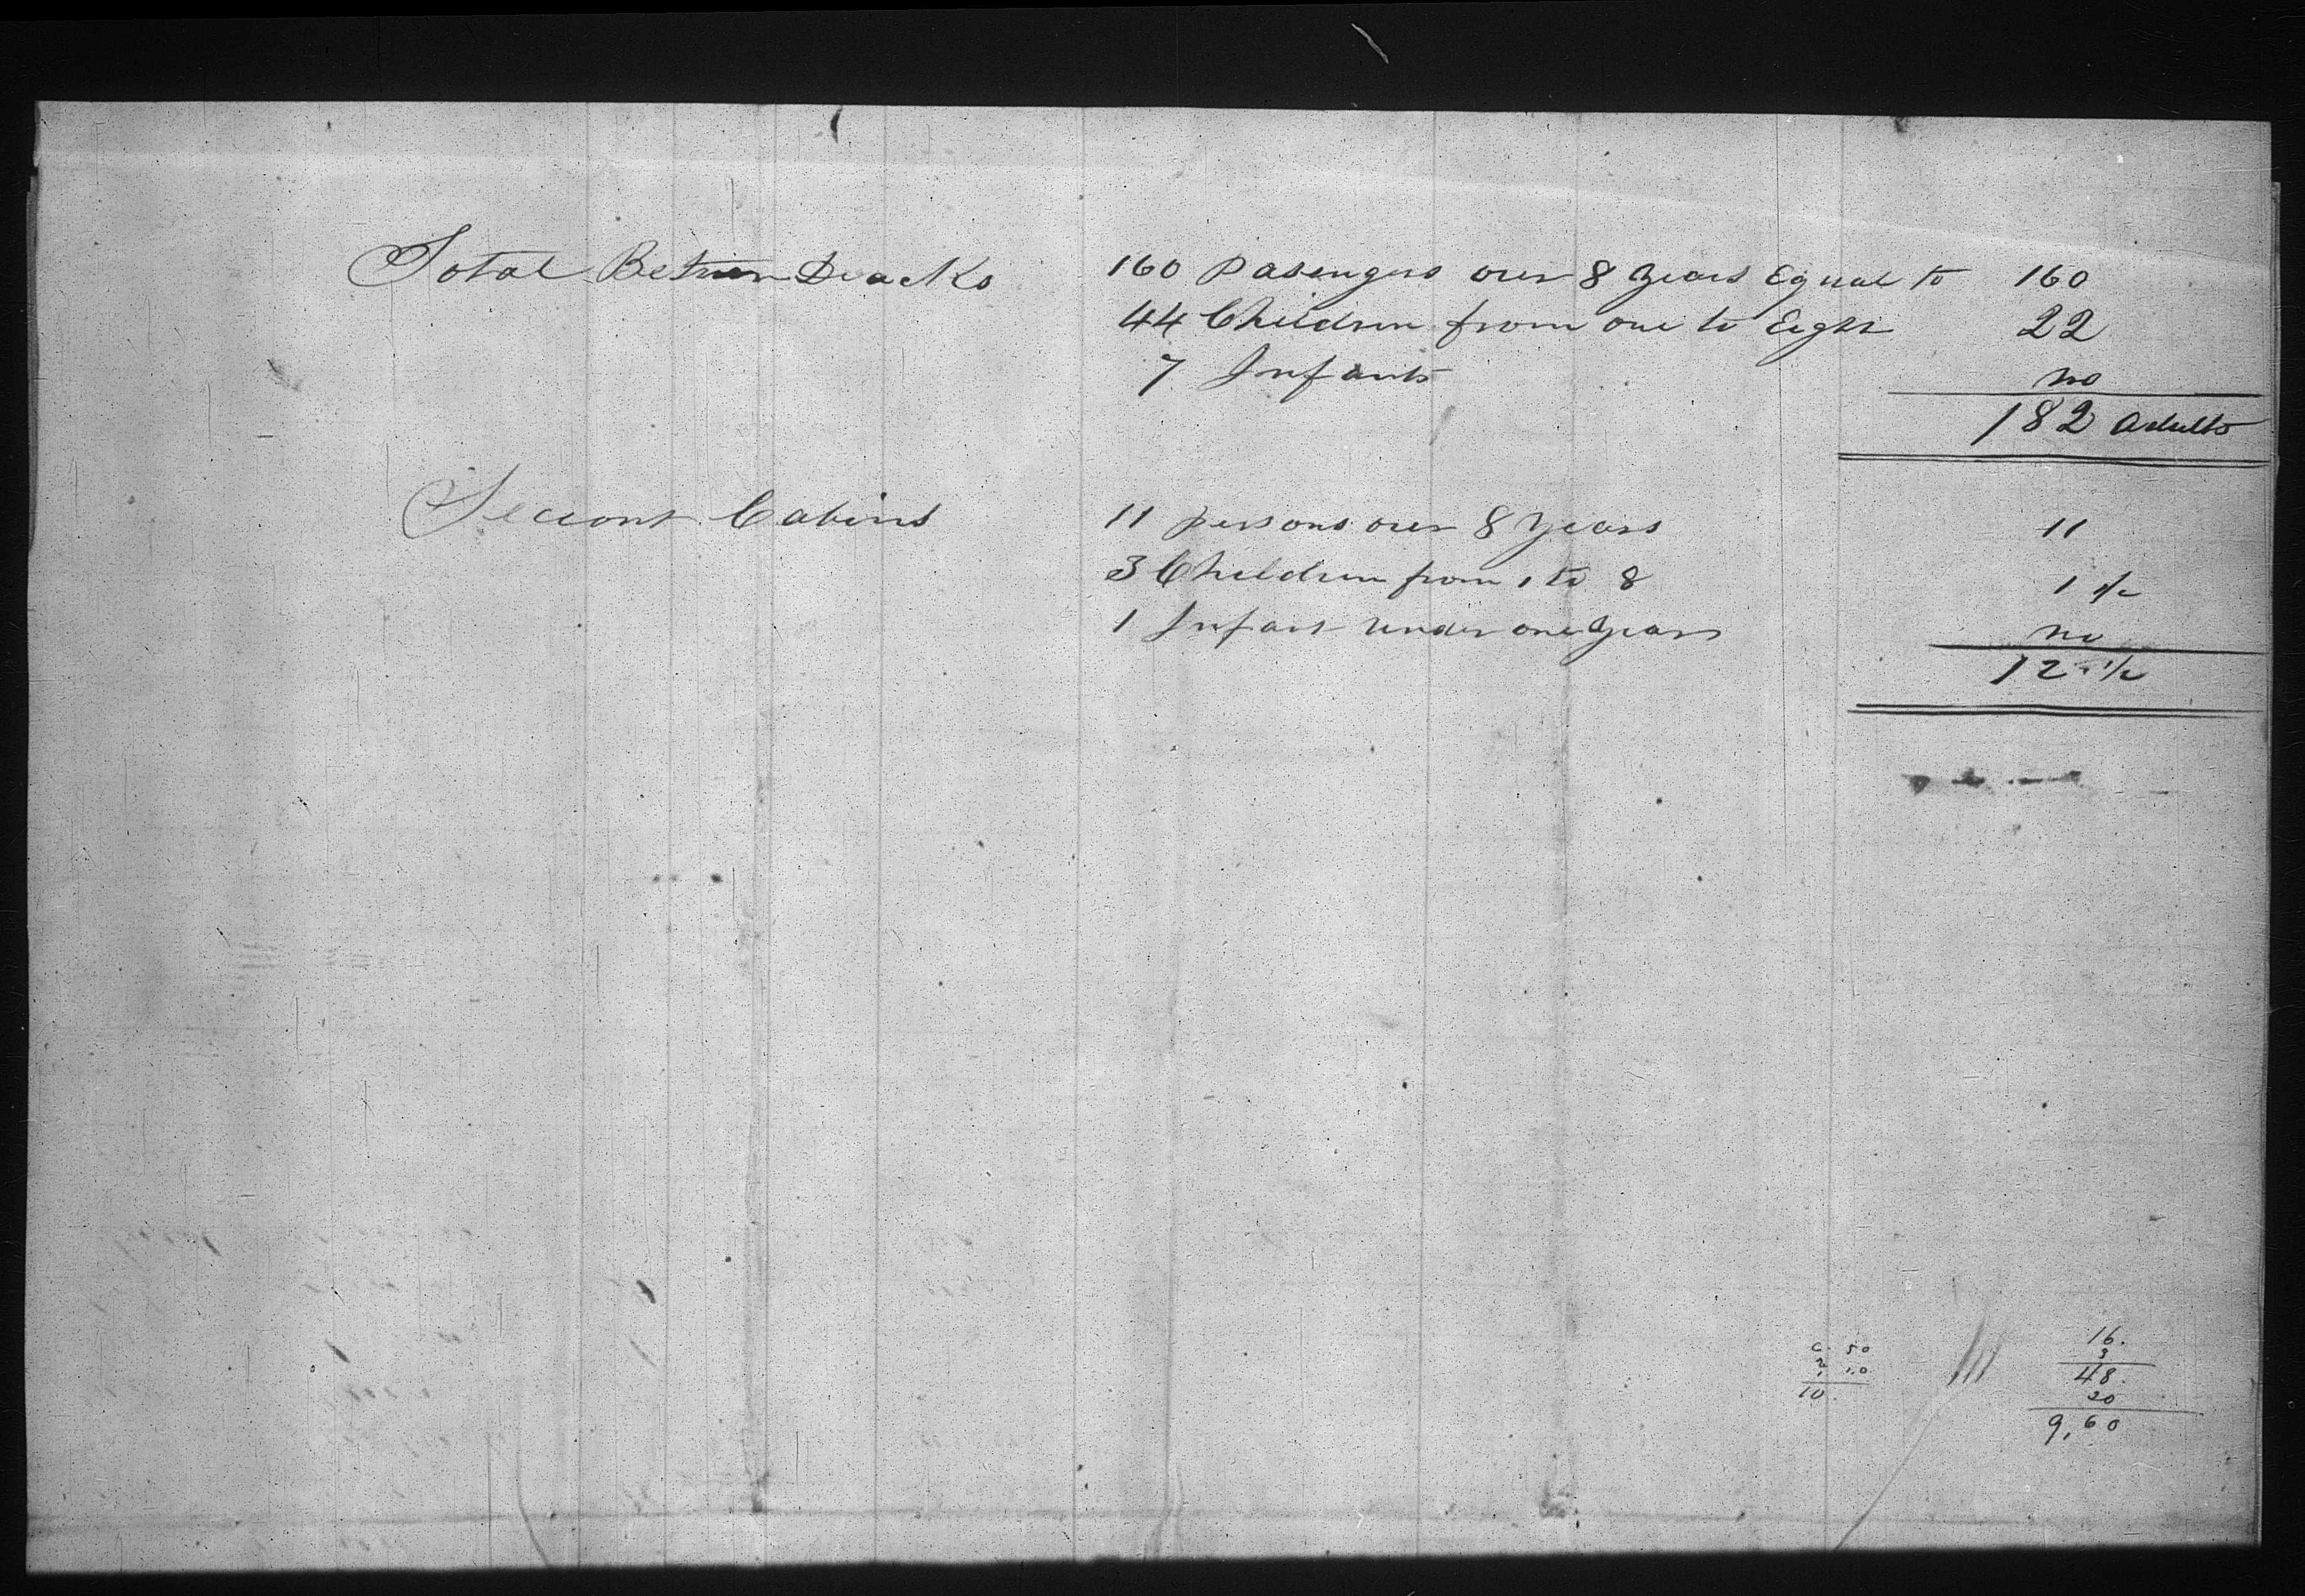 Total Between Deacks 160 Pasengers over 8 Years Equal to 160
44 Children from one to Eight 22
7 Infants no
182 adults
Second Cabins 11 persons over 8 Years 11
3 Children from 1 to 8 1 1/2
1 Infant under one Years no
12 1/2
16.
3
48.
20
9,60
c. 50
10